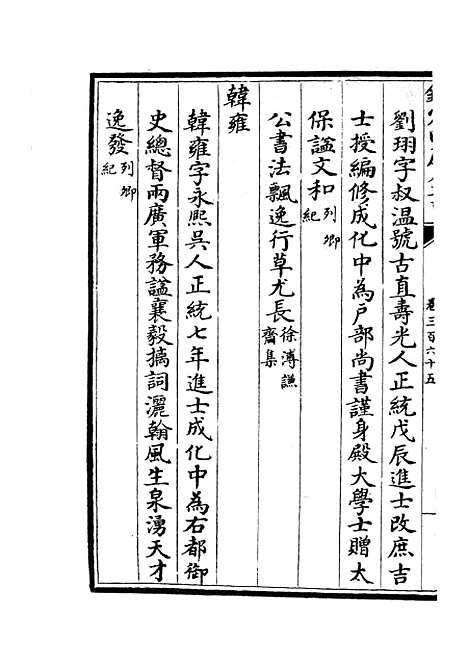 卷三百六十五
劉珝字叔温號古直壽光人正統戊辰進士改庶吉
士授編修成化中為戶部尚書謹身殿大學士贈太
保諡文和列卿紀
公書法飄逸行草尤長徐溥謙齋集
韓雍
韓雍字永熙吳人正統七年進士成化中為右都御
史總督兩廣軍務諡襄毅摛詞灑翰風生泉湧天才
逸發列卿紀